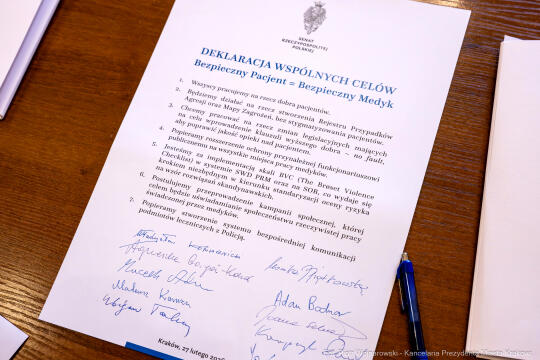 SENAT
RZECZYPOSPOLITEJ
POLSKIEJ
DEKLARACJA WSPÓLNYCH CELÓW
Bezpieczny Pacjent = Bezpieczny Medyk
1. Wszyscy pracujemy na rzecz dobra pacjentów.
2. Będziemy działać na rzecz stworzenia Rejestru Przypadków
Agresji oraz Mapy Zagrożeń, bez stygmatyzowania pacjentów.
3. Chcemy pracować na rzecz zmian legislacyjnych mających
na celu wprowadzenie klauzuli wyższego dobra – no fault,
aby poprawić jakość opieki nad pacjentem.
4. Popieramy rozszerzenie ochrony przynależnej funkcjonariuszowi
publicznemu na wszystkie miejsca pracy medyków.
5. Jesteśmy za implementacją skali BVC (The Broset Violence
Checklist) w systemie SWD PRM oraz na SOR, co wydaje się
krokiem niezbędnym w kierunku standaryzacji oceny ryzyka
na wzór rozwiązań skandynawskich.
6. Postulujemy przeprowadzenie kampanii społecznej, której
celem będzie uświadamianie społeczeństwu rzeczywistej pracy
świadczonej przez medyków.
7. Popieramy stworzenie systemu bezpośredniej komunikacji
podmiotów leczniczych z Policją.
Adam Bodnar
Kraków, 27 lutego 202
- Kancelaria Prezydenta Miasta Krakowa